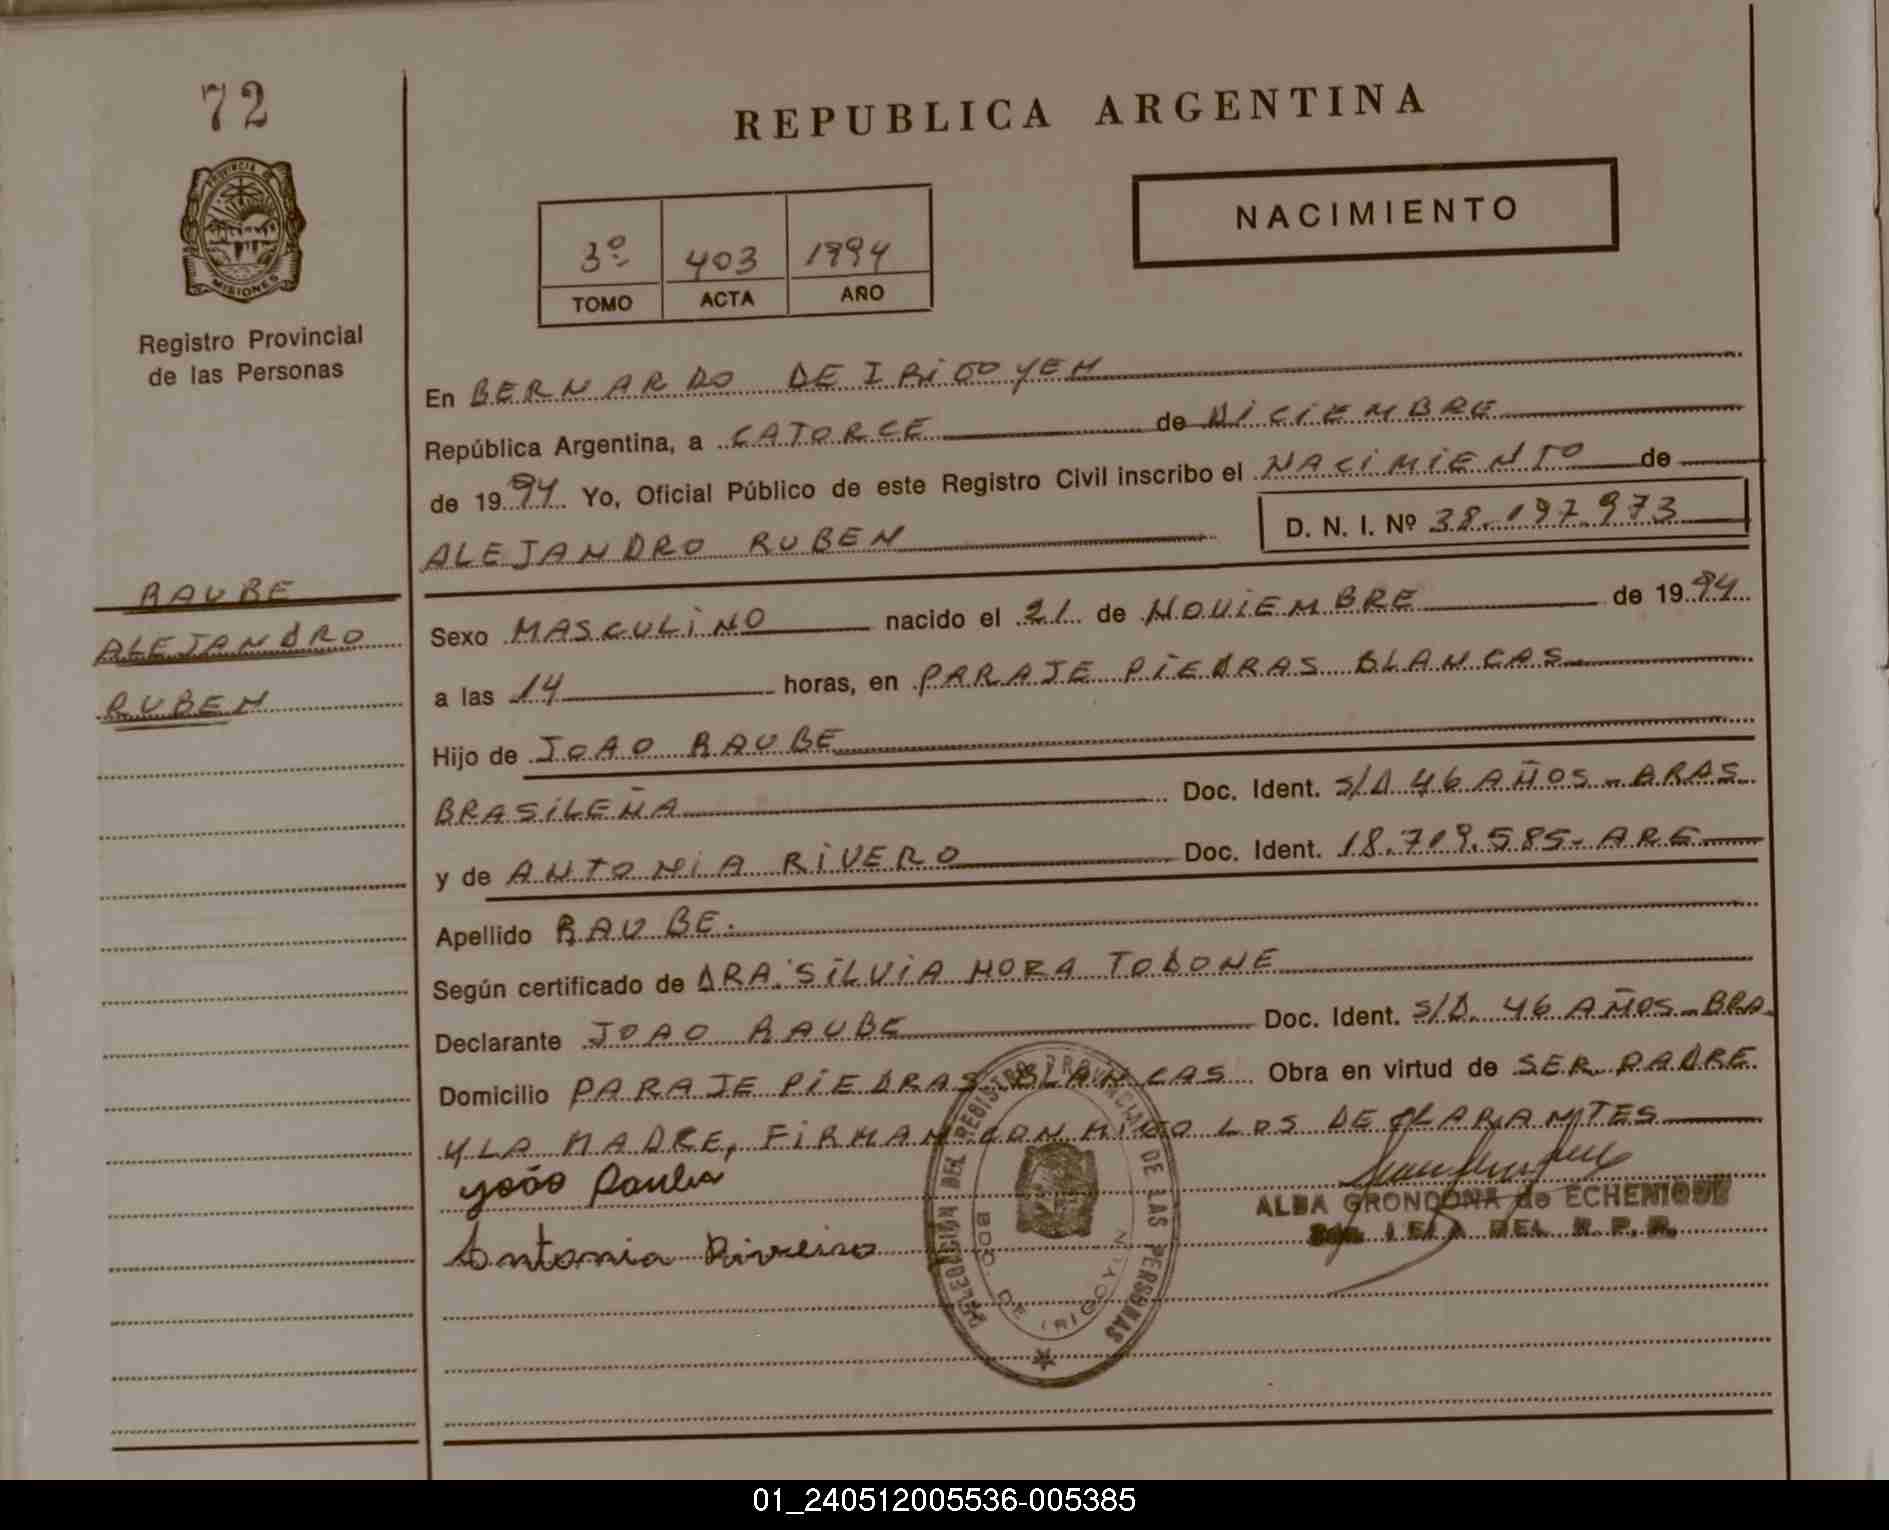 72
PROVINCIA DE
MISIONES
Registro Provincial
de las Personas
REPUBLICA ARGENTINA
NACIMIENTO
3º 403 1994
TOMO ACTA AÑO
En BERNARDO DE IRIGOYEN
República Argentina, a CATORCE de DICIEMBRE
de 1994 Yo, Oficial Público de este Registro Civil inscribo el NACIMIENTO de
ALEJANDRO RUBEN D. N. I. Nº 38.197.973
RAUBE
ALEJANDRO
RUBEN
Sexo MASCULINO nacido el 21 de NOVIEMBRE de 1994
a las 14 horas, en PARAJE PIEDRAS BLANCAS
Hijo de JOAO RAUBE
BRASILEÑA Doc. Ident. S/D 46 AÑOS - ARAS
y de ANTONIA RIVERO Doc. Ident. 18.719.585- ARG
Apellido RAUBE.
Según certificado de DRA. SILVIA MORA TODONE
Declarante JOAO RAUBE Doc. Ident. S/D. 46 AÑOS - BRA
Domicilio PARAJE PIEDRAS BLANCAS Obra en virtud de SER PADRE
Y LA MADRE, FIRMAN CONMIGO LOS DECLARANTES
João Raube
Antonia Riveiro
DELEGACION DEL REGISTRO PROVINCIAL DE LAS PERSONAS
BDO. DE IRIGOYEN
ALBA GRONDONA de ECHENIQUE
DEL R. P. P.
01_240512005536-005385